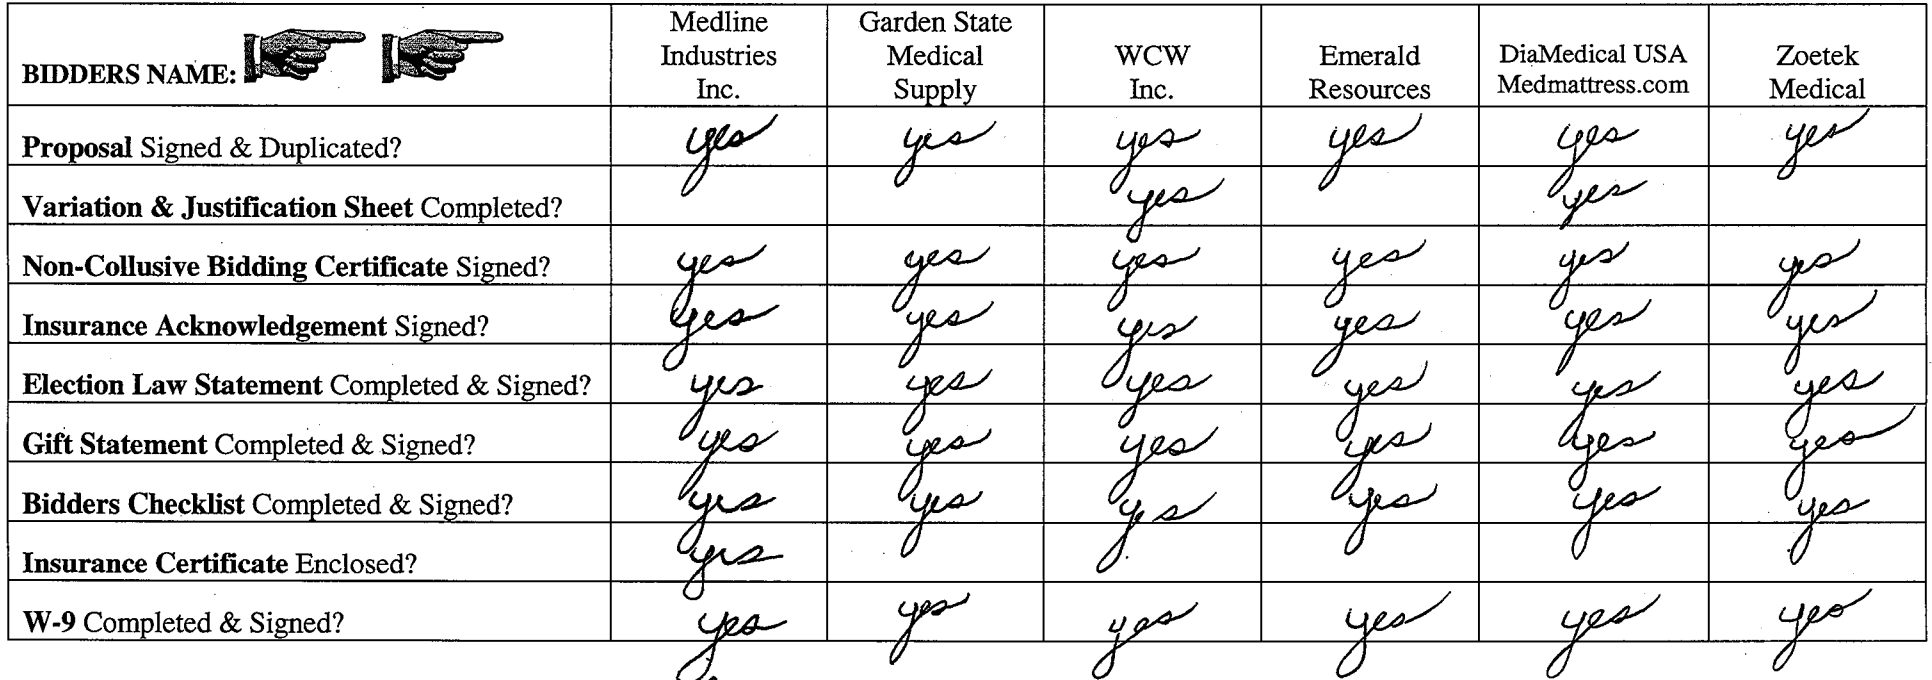 BIDDERS NAME: Medline Industries Inc. Garden State Medical Supply WCW Inc. Emerald Resources DiaMedical USA Medmattress.com Zoetek Medical
Proposal Signed & Duplicated? yes yes yes yes yes yes
Variation & Justification Sheet Completed? yes yes
Non-Collusive Bidding Certificate Signed? yes yes yes yes yes yes
Insurance Acknowledgement Signed? yes yes yes yes yes yes
Election Law Statement Completed & Signed? yes yes yes yes yes yes
Gift Statement Completed & Signed? yes yes yes yes yes yes
Bidders Checklist Completed & Signed? yes yes yes yes yes yes
Insurance Certificate Enclosed? yes
W-9 Completed & Signed? yes yes yes yes yes yes